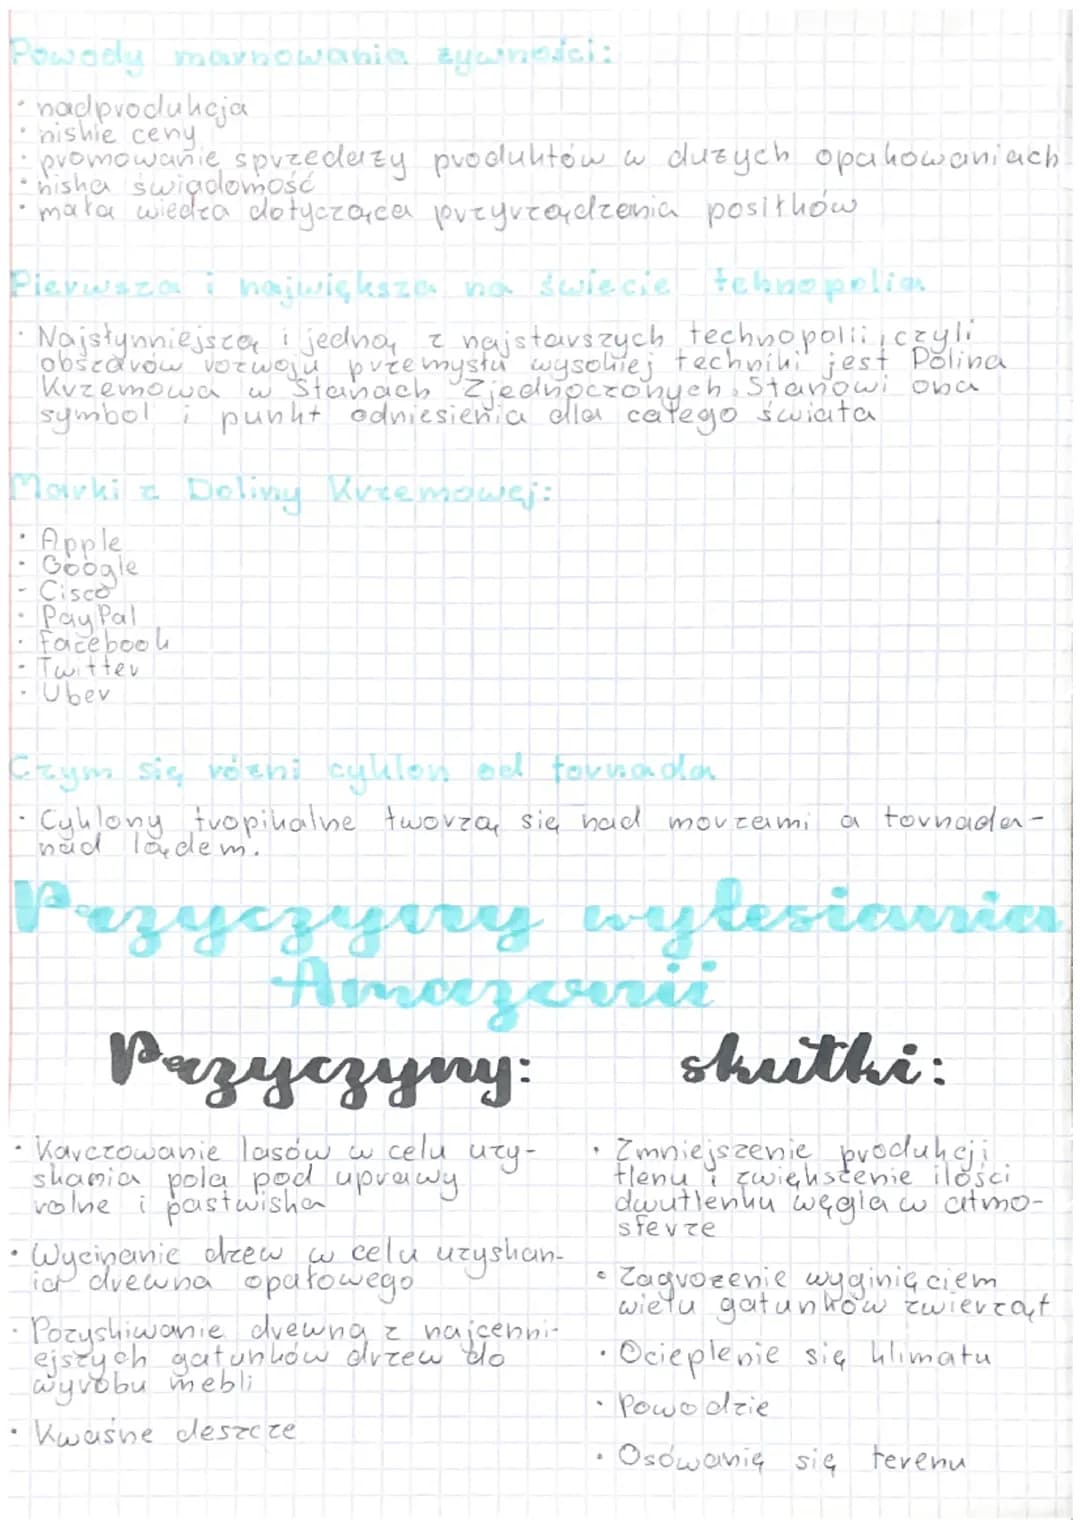 Powody marnowania żywności:
• nadprodukcja
• niskie ceny
• promowanie sprzedaży produktów w dużych opakowaniach
• niska świadomość
• mała wiedza dotycząca przyrządzania posiłków
Pierwsza i największa na świecie tehnopolia
• Najsłynniejszą i jedną z najstarszych technopolii, czyli
obszarów rozwoju przemysłu wysokiej techniki jest Dolina
Krzemowa w Stanach Zjednoczonych. Stanowi ona
symbol i punkt odniesienia dla całego świata
Marki z Doliny Krzemowej:
• Apple
• Google
- Cisco
• PayPal
• Facebook
• Twitter
• Uber
Czym się różni cyklon od tornada
• Cyklony tropikalne tworzą się nad morzami a tornada-
nad lądem.
Przyczyny wylesiania
Amazonii
Przyczyny:
• Karczowanie lasów w celu uzy-
skania pola pod uprawy
rolne i pastwiska
• Wycinanie drzew w celu uzyskan-
ia drewna opałowego
• Pozyskiwanie drewna z najcenni-
ejszych gatunków drzew do
wyrobu mebli
• Kwaśne deszcze
skutki:
• Zmniejszenie produkcji
tlenu i zwiększenie ilości
dwutlenku węgla w atmo-
sferze
• Zagrożenie wyginięciem
wielu gatunków zwierząt
• Ocieplenie się klimatu
• Powodzie
• Osówanię się terenu